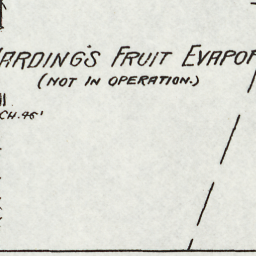 ARDING'S FRUIT EVAPOR
(NOT IN OPERATION.)
CH. 46'